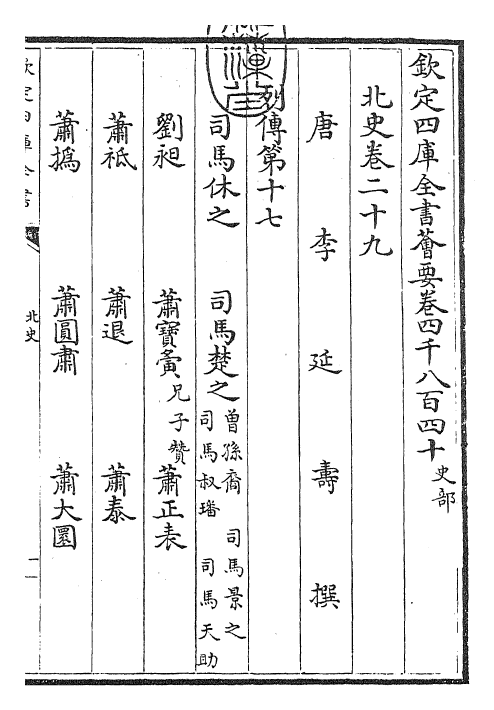 欽定四庫全書薈要卷四千八百四十 史部
北史卷二十九
唐 李 延 壽 撰
列傳第十七
司馬休之 司馬楚之 曾孫裔 司馬景之
司馬叔璠 司馬天助
劉昶 蕭寶夤 兄子贊 蕭正表
蕭祗 蕭退 蕭泰
蕭撝 蕭圓肅 蕭大圜
欽定四庫全書
北史
一